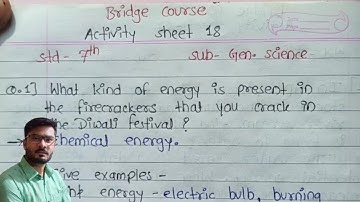 Bridge Course
Activity sheet 18
Std- 7th
Sub- Gen. Science
Q.1] What kind of energy is present in
the firecrackers that you crack in
the Diwali festival?
chemical energy.
examples -
energy - electric bulb, burning